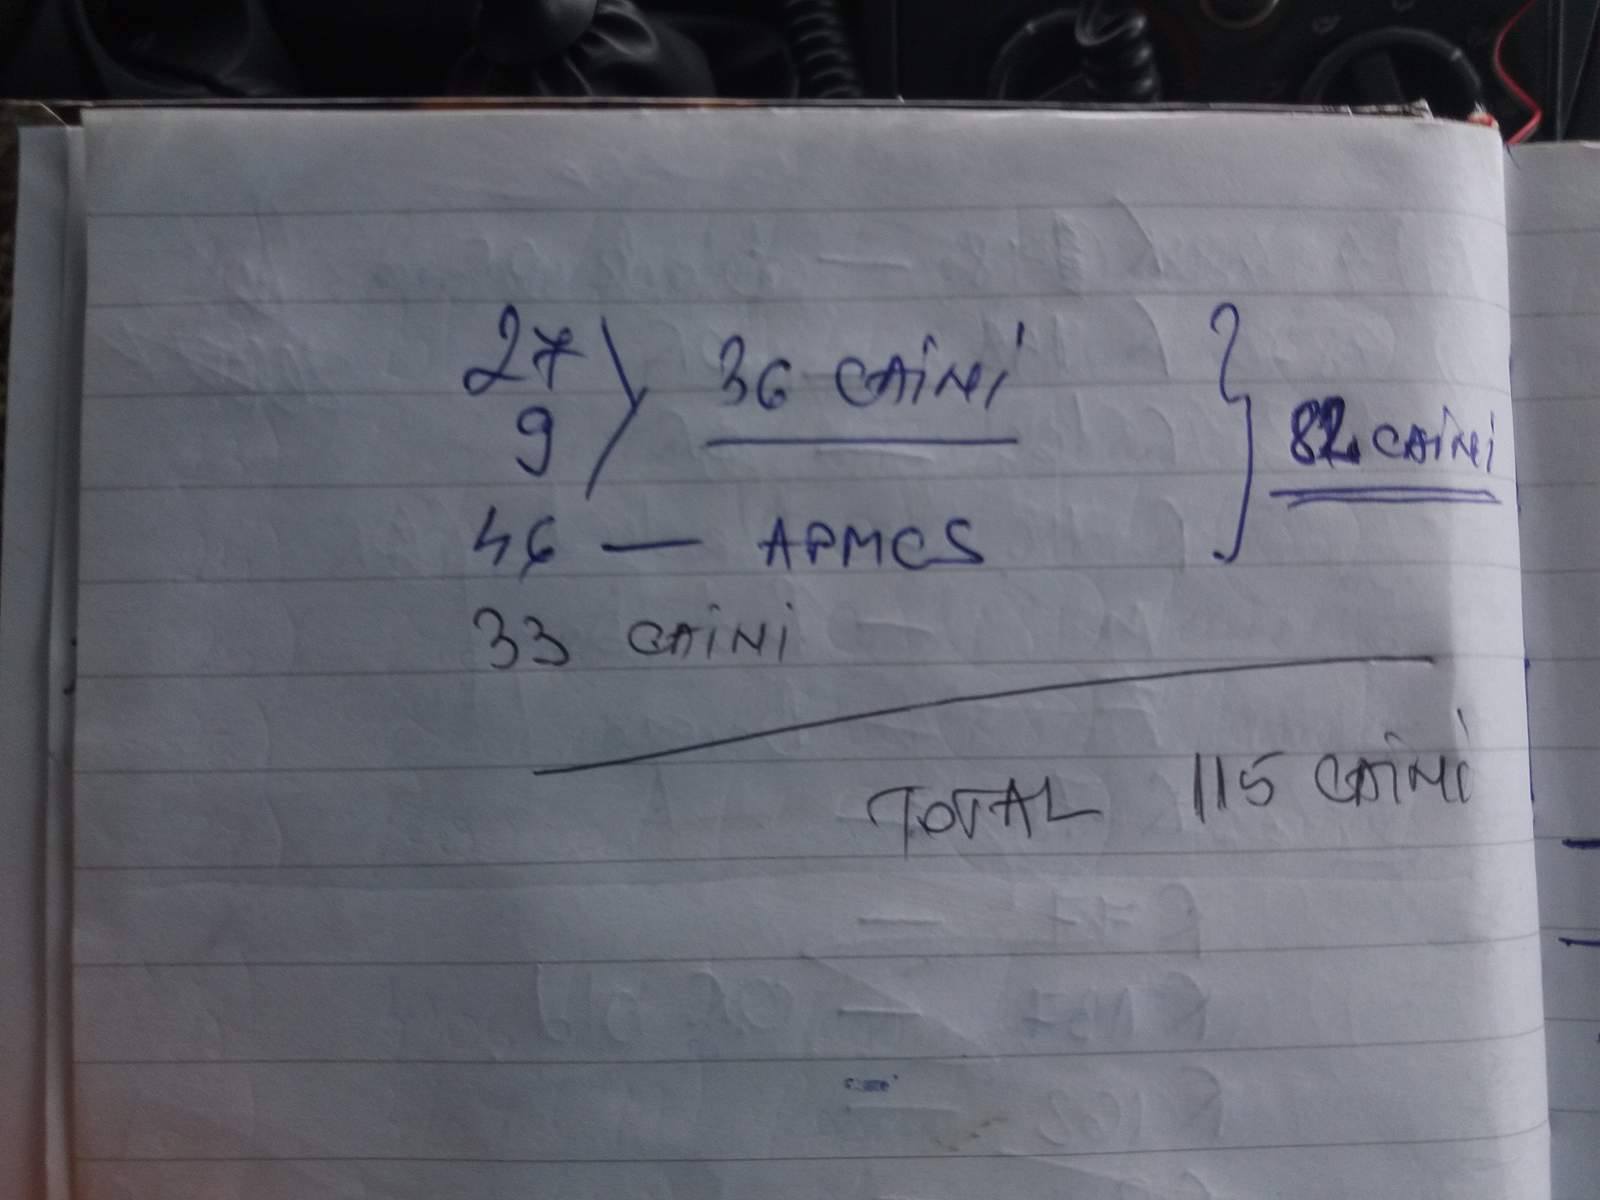 27
9
36 CAINI
46 — APMCS
82 CAINI
33 CAINI
TOTAL 115 CAINI